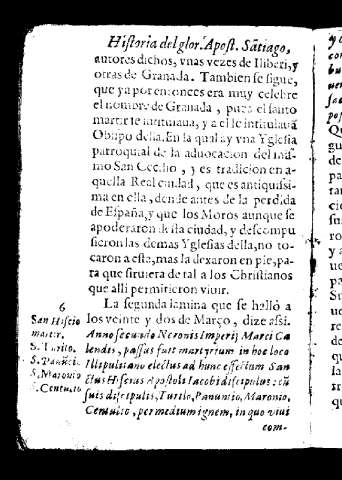 Historia del glor. Apost. Sãtiago,
autores dichos, vnas vezes de Iliberi, y
otras de Granada. Tambien se sigue,
que ya por entonces era muy celebre
el nombre de Granada, pues el santo
martir se intitulaua, y a el le intitulauã
Obispo della. En la qual ay vna Yglesia
parroquial de la aduocacion del mis-
mo San Cecilio, y es tradicion en a-
quella Real ciudad, que es antiquissi-
ma en ella, dende antes de la perdida
de España, y que los Moros aunque se
apoderaron desta ciudad, y descompu
sieron las demas Yglesias della, no to-
caron a esta, mas la dexaron en pie, pa-
ra que siruiera de tal a los Christianos
que alli permitieron viuir.
6
La segunda lamina que se hallò a
los veinte y dos de Março, dize assi.
San Hiscio
martir.
S. Turilo.
S. Panũcio
S. Maronio
S. Centulio
Anno secundo Neronis Imperij Marci Ca
lendis, passus fuit martyrium in hoc loco
Illipulitano electus ad hunc effectum San
ctus Hiscius Apostoli Iacobi discipulus: cũ
suis discipulis, Turilo, Panunio, Maronio,
Centulio, per medium ignem, in quo viui
com-